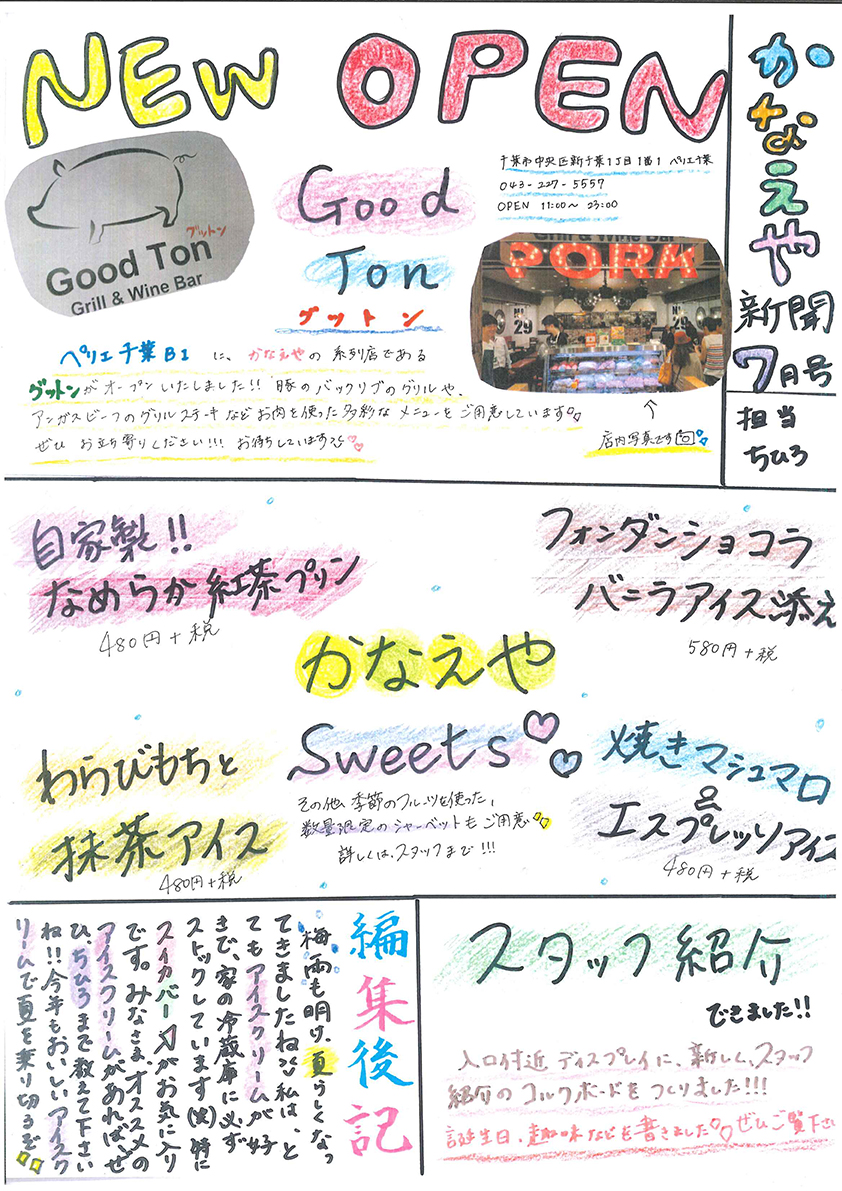 かなえや
新聞
7月号
担当
ちひろ
NEW OPEN
グットン
Good Ton
Grill & Wine Bar
Good
Ton
グットン
千葉市中央区新千葉1丁目1番1 ペリエ千葉
043-227-5557
OPEN 11:00〜23:00
Grill & Wine Bar
PORK
29
ペリエ千葉B1 に、かなえやの系列店である
グットンがオープンいたしました!! 豚のバックリブのグリルや、
アンガスビーフのグリルステーキなどお肉を使った多彩なメニューをご用意しています
ぜひ お立ち寄りください!!! お待ちしています
↑
店内写真です
自家製!!
なめらか紅茶プリン
480円+税
フォンダンショコラ
バニラアイス添え
580円+税
かなえや
Sweets
その他、季節のフルーツを使った、
数量限定のシャーベットもご用意
詳しくは、スタッフまで!!!
わらびもちと
抹茶アイス
480円+税
焼きマシュマロ
&
エスプレッソアイス
480円+税
スタッフ紹介
できました!!
入口付近 ディスプレイに、新しく、スタッフ
紹介のコルクボードをつくりました!!!
誕生日、趣味などを書きました ぜひご覧下さい
編集後記
梅雨も明け、夏らしくなっ
てきましたね 私は、と
てもアイスクリームが好
きで、家の冷蔵庫に必ず
ストックしています(笑)特に
スイカバーがお気に入り
です。みなさま、オススメの
アイスクリームがあれば、ぜ
ひ、ちひろまで教えて下さい
ね!!今年もおいしいアイスク
リームで夏を乗り切るぞ